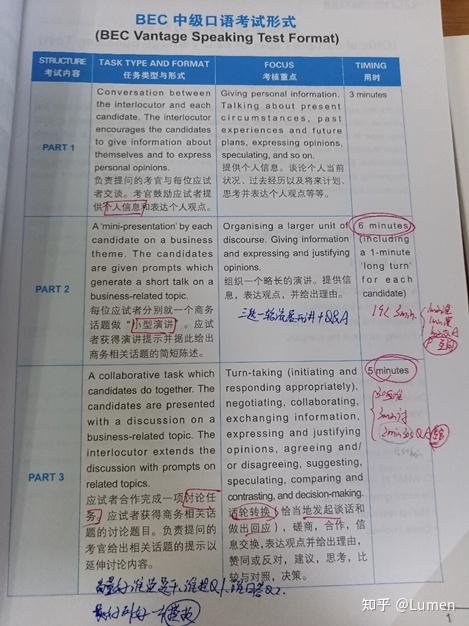 BEC 中级口语考试形式
(BEC Vantage Speaking Test Format)
STRUCTURE
考试内容
TASK TYPE AND FORMAT
任务类型与形式
FOCUS
考核重点
TIMING
用时
PART 1
Conversation between
the interlocutor and each
candidate. The interlocutor
encourages the candidates
to give information about
themselves and to express
personal opinions.
负责提问的考官与每位应试
者交谈。考官鼓励应试者提
供个人信息和表达个人观点。
Giving personal information.
Talking about present
circumstances, past
experiences and future
plans, expressing opinions,
speculating, and so on.
提供个人信息。谈论个人当前
状况、过去经历以及将来计划、
思考并表达个人观点等等。
3 minutes
PART 2
A 'mini-presentation' by each
candidate on a business
theme. The candidates
are given prompts which
generate a short talk on a
business-related topic.
每位应试者分别就一个商务
话题做“小型演讲”。应试
者获得演讲提示并据此给出
商务相关话题的简短陈述。
Organising a larger unit of
discourse. Giving information
and expressing and justifying
opinions.
组织一个略长的演讲。提供信
息，表达观点，并给出理由。
三选一轮流展示讲+Q&A
6 minutes
(including
a 1-minute
'long turn'
for each
candidate)
PART 3
A collaborative task which
candidates do together. The
candidates are presented
with a discussion on a
business-related topic. The
interlocutor extends the
discussion with prompts on
related topics.
应试者合作完成一项讨论任
务。应试者获得商务相关话
题的讨论题目。负责提问的
考官给出相关话题的提示以
延伸讨论内容。
Turn-taking (initiating and
responding appropriately),
negotiating, collaborating,
exchanging information,
expressing and justifying
opinions, agreeing and/
or disagreeing, suggesting,
speculating, comparing and
contrasting, and decision-making.
话轮转换（恰当地发起谈话和
做出回应），磋商，合作，信
息交换，表达观点并给出理由，
赞同或与反对，建议，思考，比
较与对照，决策。
5 minutes
1
知乎 @Lumen